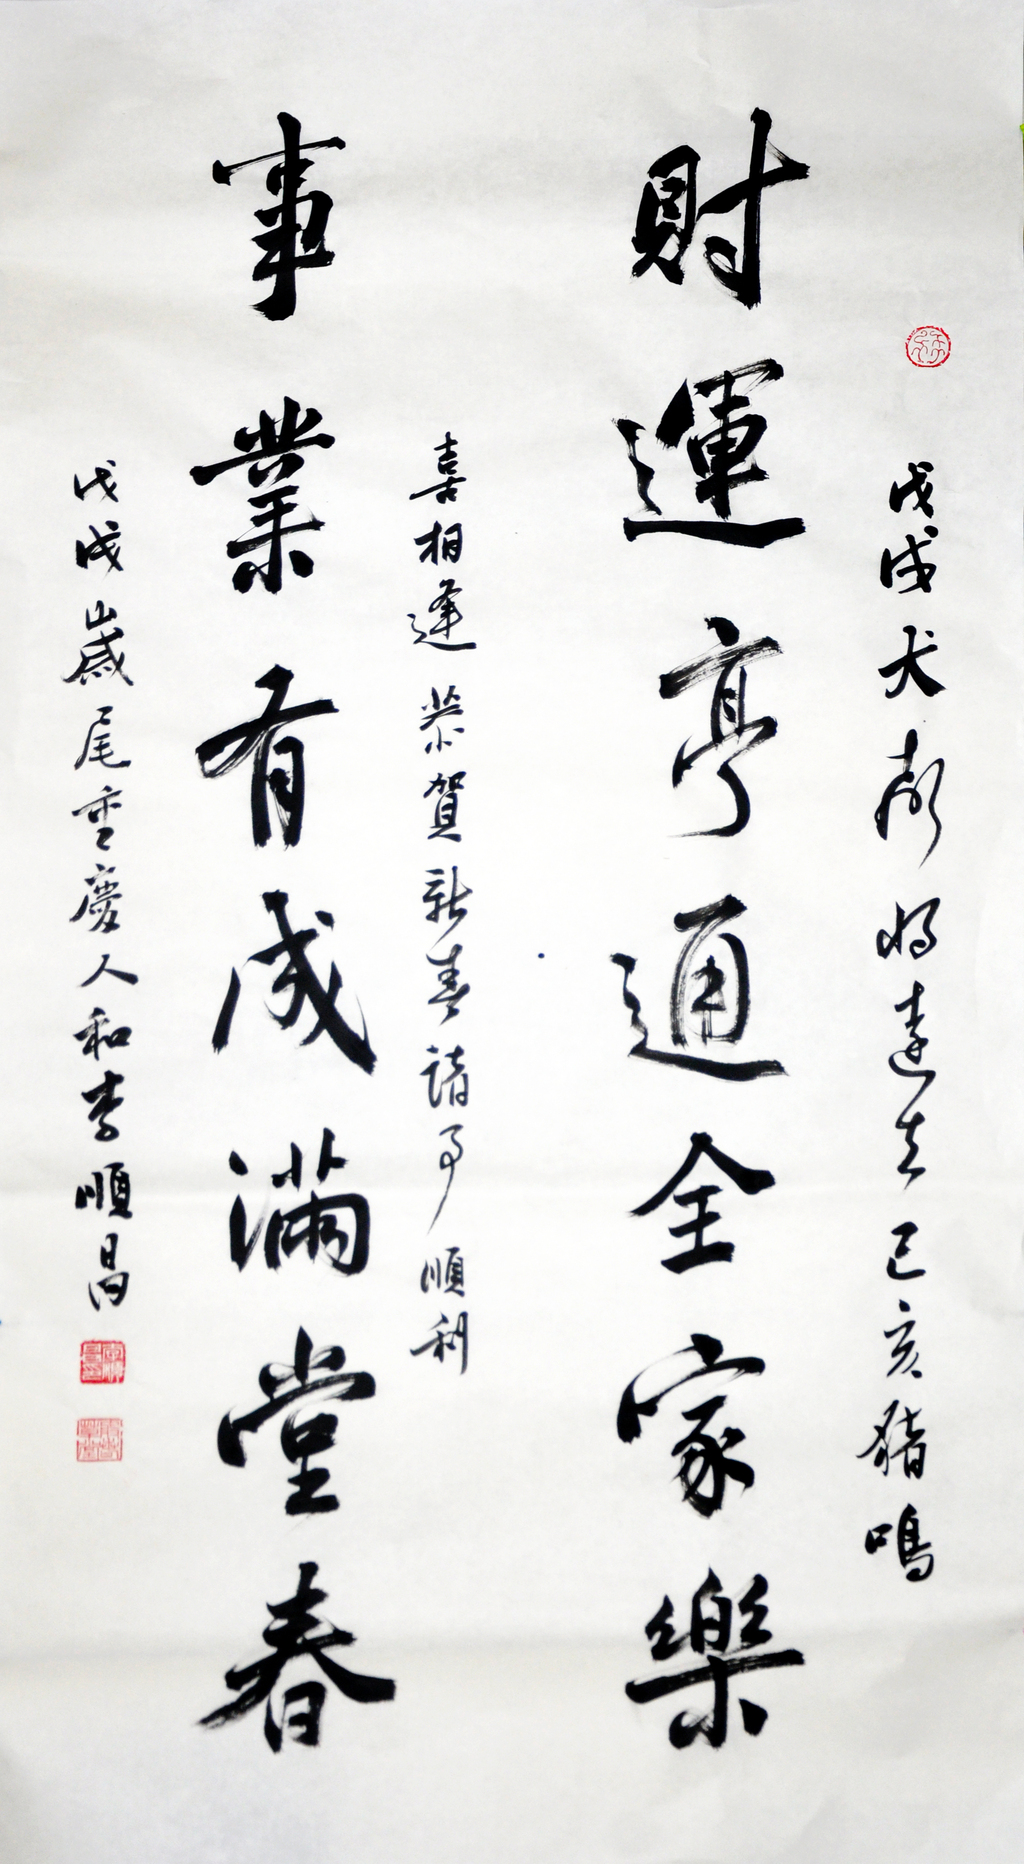 戊戌犬將遠去己亥豬鳴
財運亨通全家樂
喜相逢 恭賀新春諸事順利
事業有成滿堂春
戊戌歲尾重慶人和李順昌